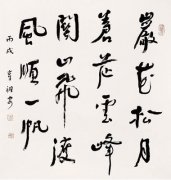 巖花松月
蒼茫雲峰
關山飛渡
風順一帆
丙戌